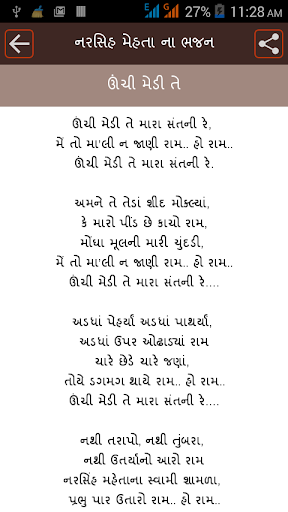 27% 11:28 AM
નરસિંહ મેહતા ના ભજન
ઊંચી મેડી તે
ઊંચી મેડી તે મારા સંતની રે,
મેં તો મા'લી ન જાણી રામ.. હો રામ..
ઊંચી મેડી તે મારા સંતની રે.
અમને તે તેડાં શીદ મોકલ્યાં,
કે મારો પીંડ છે કાચો રામ,
મોંઘા મૂલની મારી ચુંદડી,
મેં તો મા'લી ન જાણી રામ.. હો રામ..
ઊંચી મેડી તે મારા સંતની રે....
અડધાં પેહર્યાં અડધાં પાથર્યાં,
અડધાં ઉપર ઓઢાડ્યાં રામ
ચારે છેડે ચારે જણાં,
તોયે ડગમગ થાયે રામ.. હો રામ..
ઊંચી મેડી તે મારા સંતની રે....
નથી તરાપો, નથી તુંબરા,
નથી ઉતર્યાનો આરો રામ
નરસિંહ મહેતાના સ્વામી શામળા,
પ્રભુ પાર ઉતારો રામ.. હો રામ..